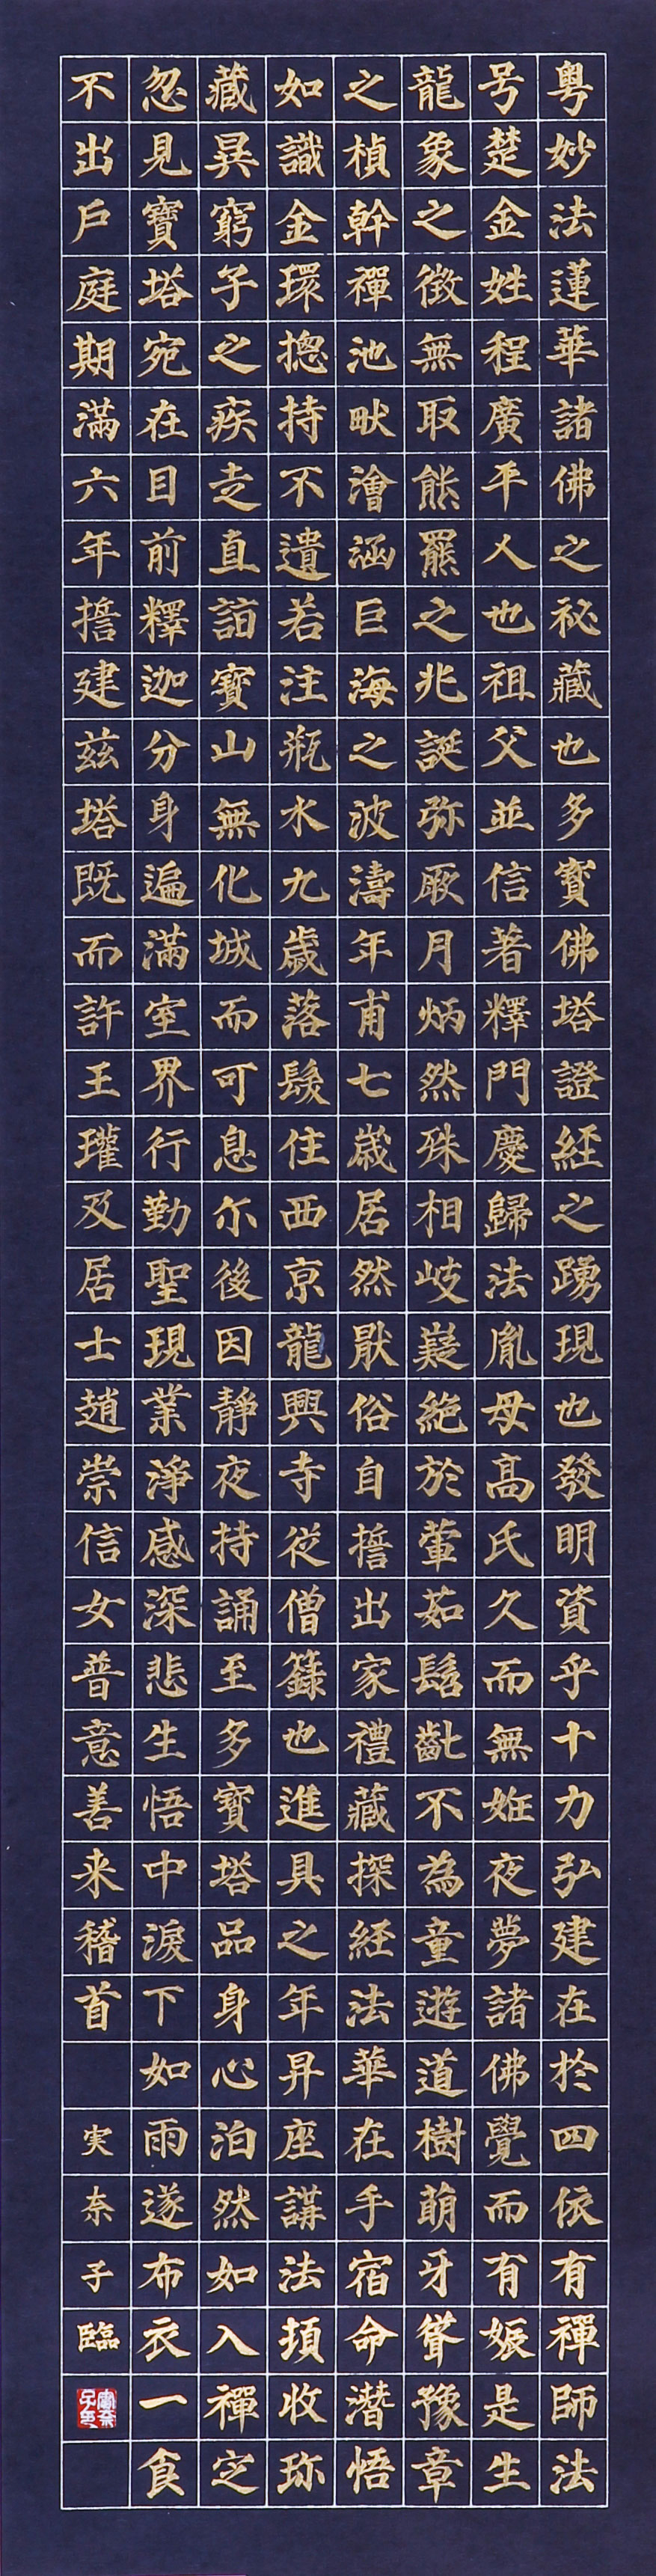 粤妙法蓮華諸佛之祕藏也多寳佛塔證経之踴現也發明資乎十力弘建在於四依有禪師法
号楚金姓程廣平人也祖父並信著釋門慶歸法胤母高氏久而無姙夜夢諸佛覺而有娠是生
龍象之徴無取熊羆之兆誕弥厥月炳然殊相岐嶷絶於葷茹髫齓不為童遊道樹萌牙聳豫章
之楨幹禪池畎澮涵巨海之波濤年甫七歳居然猒俗自誓出家禮藏探経法華在手宿命潜悟
如識金環揔持不遺若注瓶水九歲落髮住西京龍興寺従僧籙也進具之年昇座講法頓收珎
藏異窮子之疾走直詣寳山無化城而可息尒後因静夜持誦至多寳塔品身心泊然如入禪定
忽見寳塔宛在目前釋迦分身遍滿空界行勤聖現業淨感深悲生悟中淚下如雨遂布衣一食
不出戶庭期滿六年誓建茲塔既而許王瓘及居士趙崇信女普意善来稽首 実奈子臨